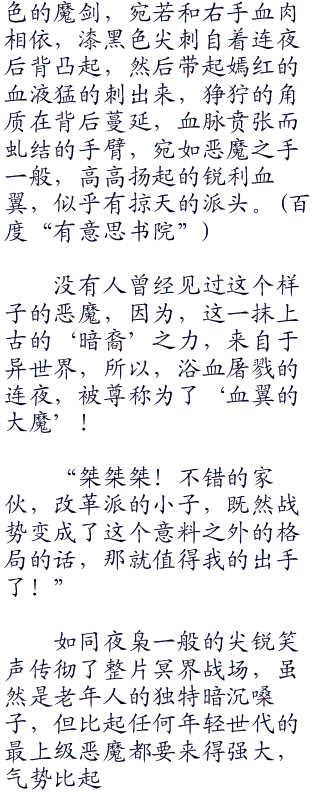 色的魔剑，宛若和右手血肉
相依，漆黑色尖刺自着连夜
后背凸起，然后带起嫣红的
血液猛的刺出来，狰狞的角
质在背后蔓延，血脉贲张而
虬结的手臂，宛如恶魔之手
一般，高高扬起的锐利血
翼，似乎有掠天的派头。(百
度“有意思书院”)
没有人曾经见过这个样
子的恶魔，因为，这一抹上
古的‘暗裔’之力，来自于
异世界，所以，浴血屠戮的
连夜，被尊称为了‘血翼的
大魔’！
“桀桀桀！不错的家
伙，改革派的小子，既然战
势变成了这个意料之外的格
局的话，那就值得我的出手
了！”
如同夜枭一般的尖锐笑
声传彻了整片冥界战场，虽
然是老年人的独特暗沉嗓
子，但比起任何年轻世代的
最上级恶魔都要来得强大，
气势比起